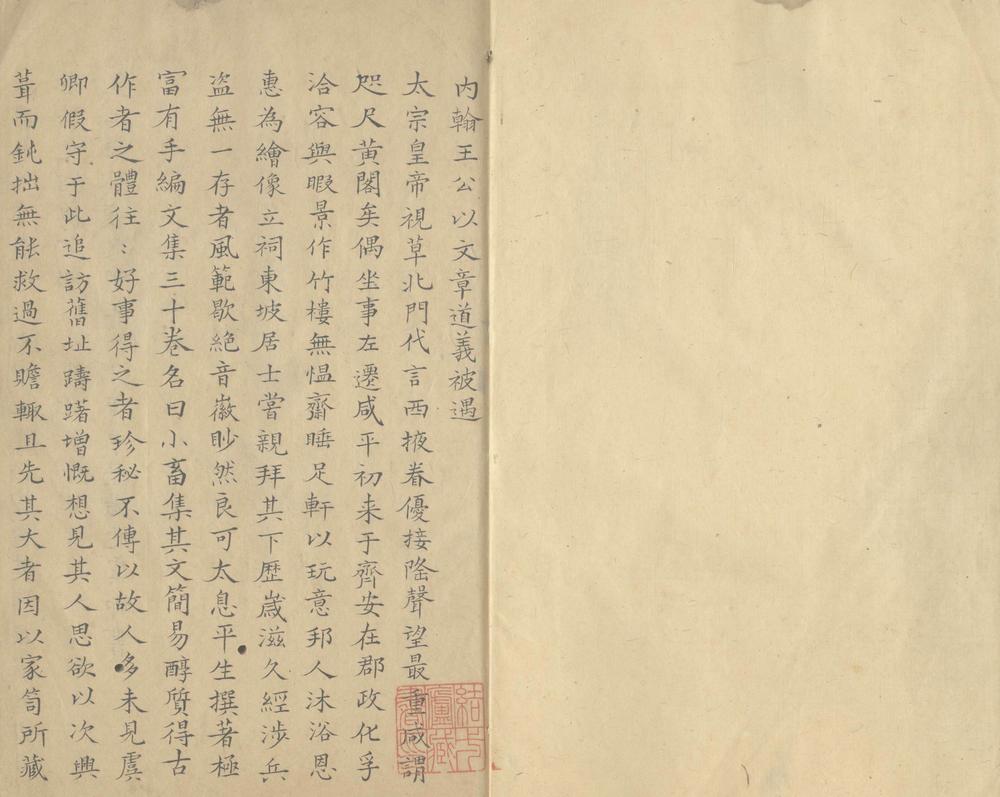 內翰王公以文章道義被遇
太宗皇帝視草北門代言西掖眷優接隆聲望最重咸謂
咫尺黃閣矣偶坐事左遷咸平初来于齊安在郡政化孚
洽容與暇景作竹樓無愠齋睡足軒以玩意邦人沐浴恩
惠為繪像立祠東坡居士嘗親拜其下歷歲滋久經涉兵
盗無一存者風範歇絕音徽眇然良可太息平生撰著極
富有手編文集三十卷名曰小畜集其文簡易醇質得古
作者之體往：好事得之者珍秘不傳以故人多未見虞
卿假守于此追訪舊址躊躇增慨想見其人思欲以次興
葺而鈍拙無能救過不贍輙且先其大者因以家笥所藏